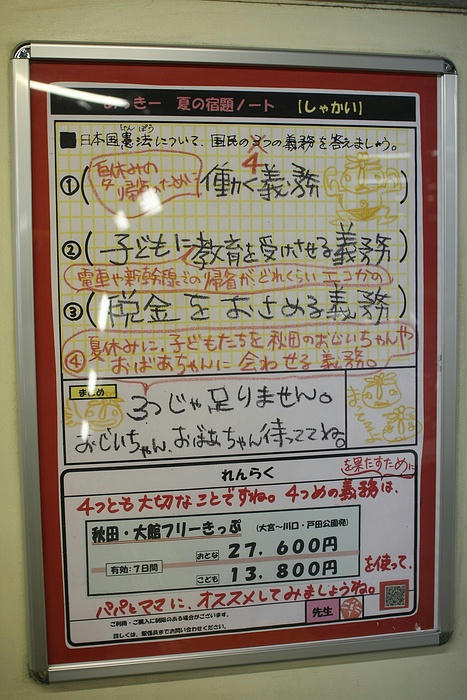 っきー 夏の宿題ノート 【しゃかい】
■日本国憲法について、国民の3つの義務を答えましょう。
けん ぽう
4
①(夏休みの帰省のために 働く義務)
②(子どもに教育を受けさせる義務)
電車や新幹線での帰省がどれくらいエコかの
③(税金をおさめる義務)
④夏休みに、子どもたちを秋田のおじいちゃんや
おばあちゃんに会わせる義務。
まとめ
3つじゃ足りません。
おじいちゃん、おばあちゃん待っててね。
れんらく
4つとも大切なことですね。4つめの義務は、
を果たすために
秋田・大館フリーきっぷ (大宮〜川口・戸田公園発)
有効:7日間
おとな 27,600円
こども 13,800円
を使って、
パパとママに、オススメしてみましょうね。
ご利用・ご購入に制限のある場合がございます。
詳しくは、駅係員までお問い合わせください。
先生